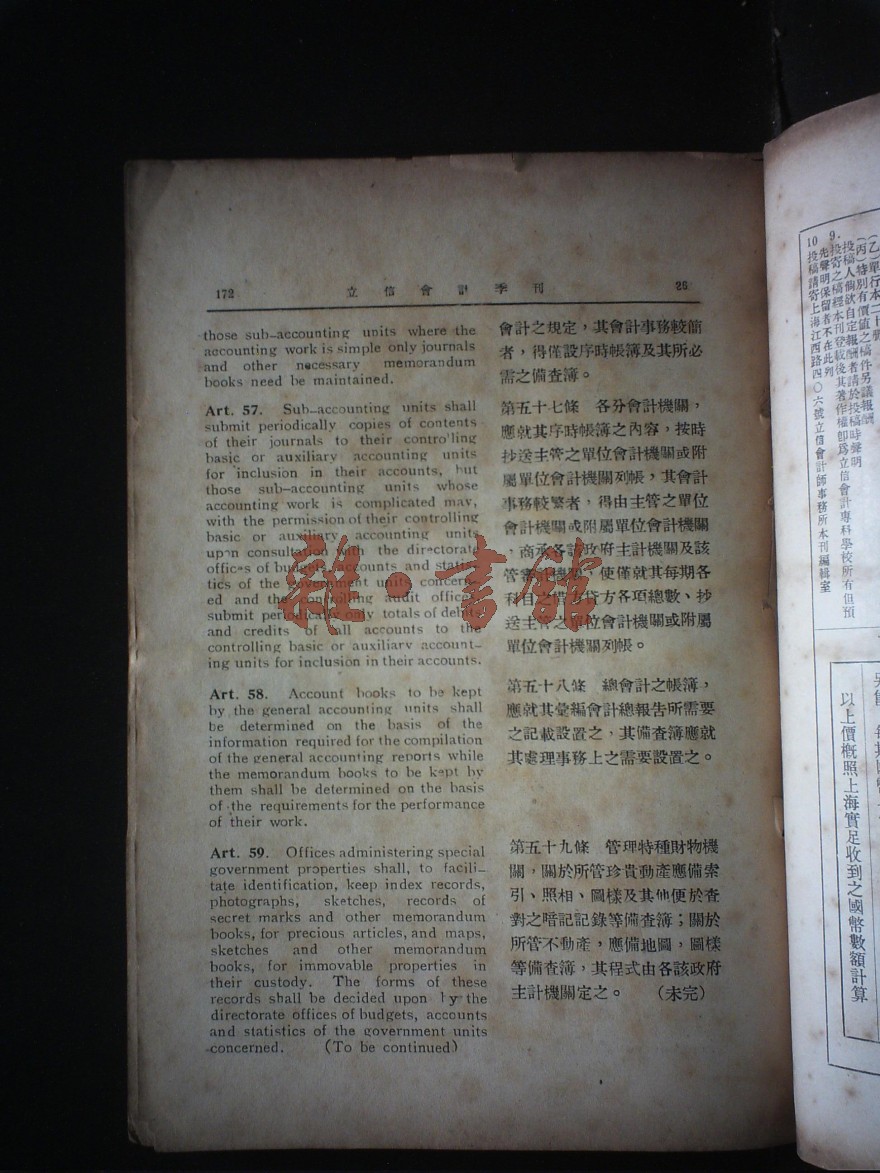 172
立信會計季刊
26
those sub-accounting units where the
accounting work is simple only journals
and other necessary memorandum
books need be maintained.
Art. 57. Sub-accounting units shall
submit periodically copies of contents
of their journals to their controlling
basic or auxiliary accounting units
for inclusion in their accounts, but
those sub-accounting units whose
accounting work is complicated may,
with the permission of their controlling
basic or auxiliary accounting units
upon consultation with the directorate
offices of budgets, accounts and statis-
tics of the government units concern-
ed and the controlling audit offices,
submit periodically only totals of debits
and credits of all accounts to the
controlling basic or auxiliary account-
ing units for inclusion in their accounts.
Art. 58. Account books to be kept
by the general accounting units shall
be determined on the basis of the
information required for the compilation
of the general accounting reports while
the memorandum books to be kept by
them shall be determined on the basis
of the requirements for the performance
of their work.
Art. 59. Offices administering special
government properties shall, to facili-
tate identification, keep index records,
photographs, sketches, records of
secret marks and other memorandum
books, for precious articles, and maps,
sketches and other memorandum
books, for immovable properties in
their custody. The forms of these
records shall be decided upon by the
directorate offices of budgets, accounts
and statistics of the government units
concerned. (To be continued)
會計之規定，其會計事務較簡
者，得僅設序時帳簿及其所必
需之備查簿。
第五十七條 各分會計機關，
應就其序時帳簿之內容，按時
抄送主管之單位會計機關或附
屬單位會計機關列帳，其會計
事務較繁者，得由主管之單位
會計機關或附屬單位會計機關
，商承各該政府主計機關及該
管審計機關，使僅就其每期各
科目之借方貸方各項總數、抄
送主管之單位會計機關或附屬
單位會計機關列帳。
第五十八條 總會計之帳簿，
應就其彙編會計總報告所需要
之記載設置之，其備查簿應就
其處理事務上之需要設置之。
第五十九條 管理特種財物機
關，關於所管珍貴動產應備索
引、照相、圖樣及其他便於查
對之暗記記錄等備查簿；關於
所管不動產，應備地圖，圖樣
等備查簿，其程式由各該政府
主計機關定之。 （未完）
雜·書館
（丙）特別有價值之稿件另議報酬
投稿人倘欲自定報酬者請於投稿時聲明
9. 投寄之稿經本刊登載後其著作權卽爲立信會計專科學校所有但預
先聲明保留者不在此列
10 投稿請寄上海江西路四〇六號立信會計師事務所本刊編輯室
以上價概照上海實足收到之國幣數額計算